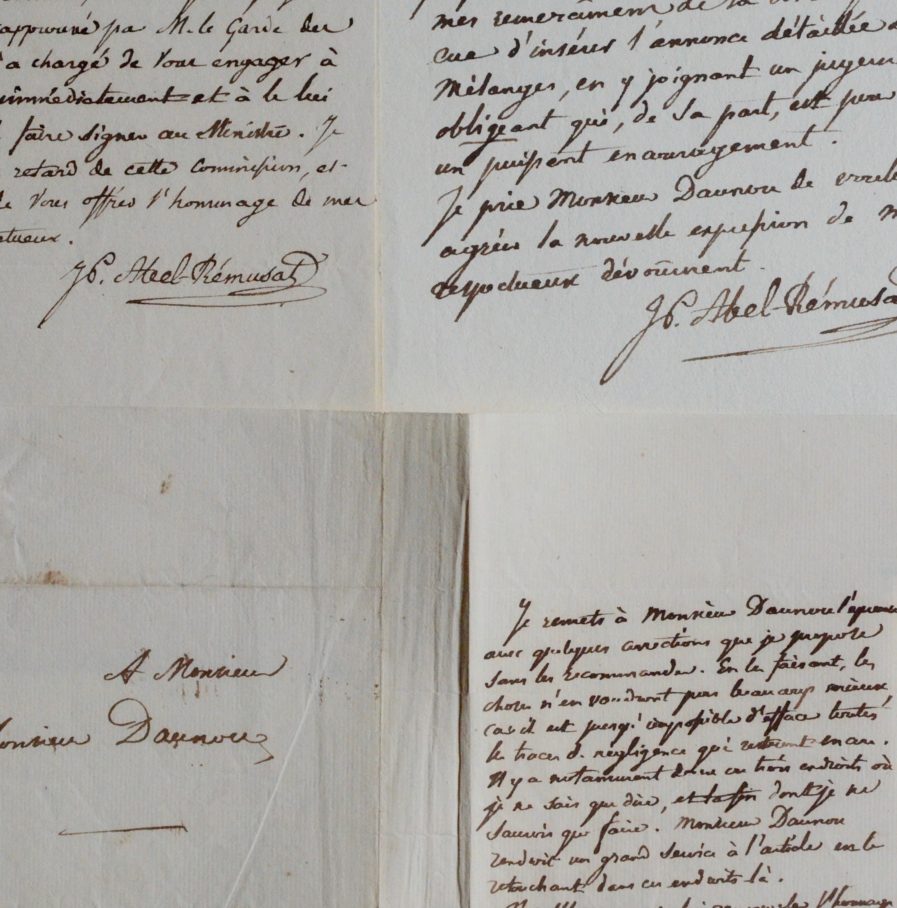 approuvé par M. le Garde des
a chargé de vous engager à
immédiatement et à le lui
faire signer au Ministre. Je
retard de cette commission, et
Vous offrir l'hommage de mes
JP. Abel-Rémusat
mes remercîmens de la
d'insérer l'annonce détaillée
Mélanges, en y joignant un jugem
obligeant qui, de sa part, est pour
un puissant encouragement.
Je prie Monsieur Daunou de voul
agréer la nouvelle expression de m
respectueux dévoûment.
JP. Abel-Rémusa
A Monsieur
onsieur Daunou
Je remets à Monsieur Daunou l'épreuve
avec quelques corrections que je propose
sans les recommander. En les faisant, les
choses n'en vaudront pas beaucoup mieux,
car il est presqu'impossible d'effacer toutes
les traces de négligence qui
Il y a notamment deux ou trois endroits où
je ne sais que dire, et dont je ne
saurois que faire. Monsieur Daunou
rendroit un grand service à l'article en le
retouchant dans ces endroits là.
l'hommage